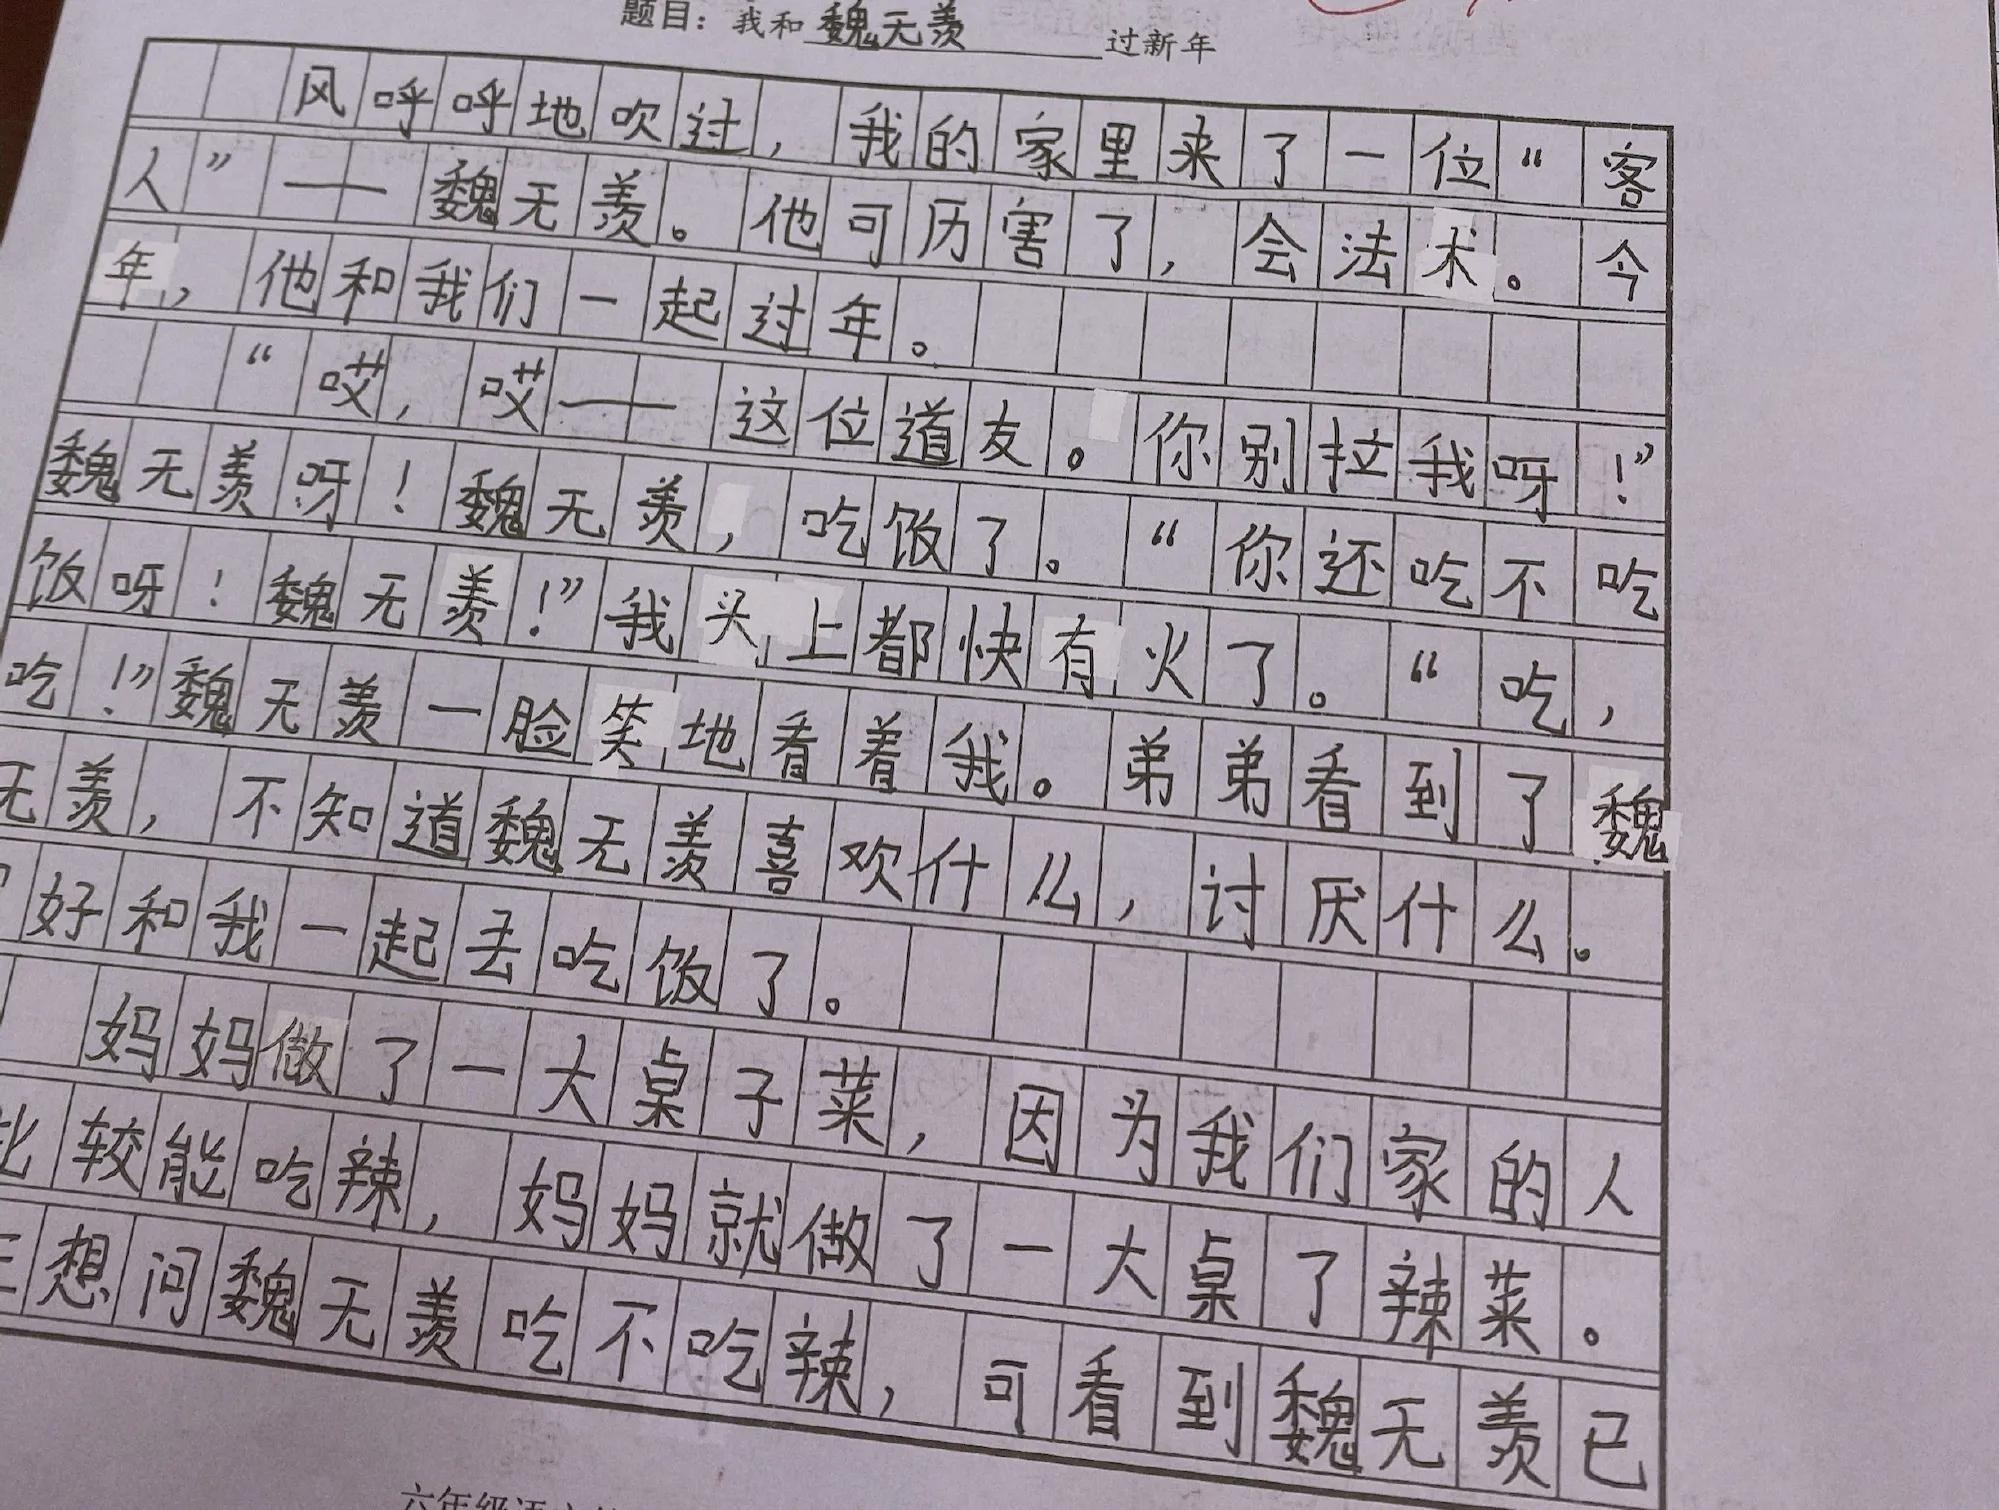 题目：我和魏无羡过新年
风呼呼地吹过，我的家里来了一位“客
人”——魏无羡。他可历害了，会法术。今
年，他和我们一起过年。
“哎，哎——这位道友。你别拉我呀！”
魏无羡呀！魏无羡，吃饭了。“你还吃不吃
饭呀！魏无羡！”我头上都快有火了。“吃，
吃！”魏无羡一脸笑地看着我。弟弟看到了魏
无羡，不知道魏无羡喜欢什么，讨厌什么。
好和我一起去吃饭了。
妈妈做了一大桌子菜，因为我们家的人
比较能吃辣，妈妈就做了一大桌了辣菜。
想问魏无羡吃不吃辣，可看到魏无羡已
六年级语文